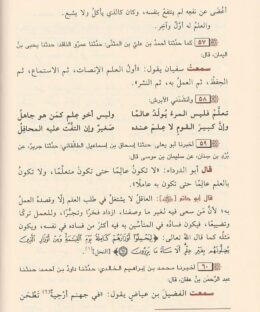 أغضى عن نفعه لم ينتفع بنفسه، وكان كالذي يأكلُ ولا يشبع.
والعلم له أوَّلٌ وآخر.
٥٧ كما حدَّثنا أحمدُ بن علي بن المثنَّى، حدَّثنا عمرو الناقد، حدَّثنا يحيى بن
اليمان، قال:
سمعت سفيان يقول: «أولُ العلم الإنصات، ثم الاستماع، ثم
الحفظ، ثم العملُ به، ثم النشر».
٥٨ وأنشدني الأبرش:
تعلَّمْ فليس المرءُ يُولَدُ عالمًا وليس أخو علمٍ كمن هو جاهلُ
وإن كبيرَ القومِ لا علمَ عنده صغيرٌ وإن التفَّت عليه المحافلُ
٥٩ أخبرنا محمد بن إسحاق بن إسماعيل الطالقاني، حدَّثنا جرير، عن
بُرْد بن سنان، عن سليمان بن موسى قال:
قال أبو الدرداء: «لا تكونُ عالمًا حتى تكونَ متعلِّمًا، ولا تكونُ
بالعلم عالمًا حتى تكون به عاملًا».
قال أبو حاتم: العاقلُ لا يشتغلُ في طلب العلم إلَّا وقصدُه العملُ
به، لأنَّ من سعى فيه لغير ما وصفنا، ازداد فخرًا وتجبُّرًا، وللعمل تركًا
وتضييعًا، فيكون فسادُه في المتأسِّين به فيه أكثر من فساده في نفسه، ويكون
مَثَلُه كما قال الله تعالى: ﴿لِيَحْمِلُوا أَوْزَارَهُمْ كَامِلَةً يَوْمَ الْقِيَامَةِ وَمِنْ أَوْزَارِ الَّذِينَ
يُضِلُّونَهُمْ بِغَيْرِ عِلْمٍ أَلَا سَاءَ مَا يَزِرُونَ﴾ [النحل].
٦٠ أخبرنا محمد بن إبراهيم الخالدي، حدَّثنا داود بن أحمد، حدثنا
عبد الرحمن بن عفان، قال:
سمعت الفضيل بن عياض يقول: «في جهنم أرْحِيةٌ تَطْحَن